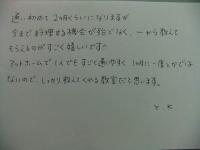 通い初めて2ヵ月くらいになりますが
今まで料理する機会が殆どなく、一から教えて
もらえるのがすごく嬉しいです！
アットホームで1人でもすごく通いやすく1回に一度とかでは
ないので、しっかり教えてくれる教室だと思います。
Y.K